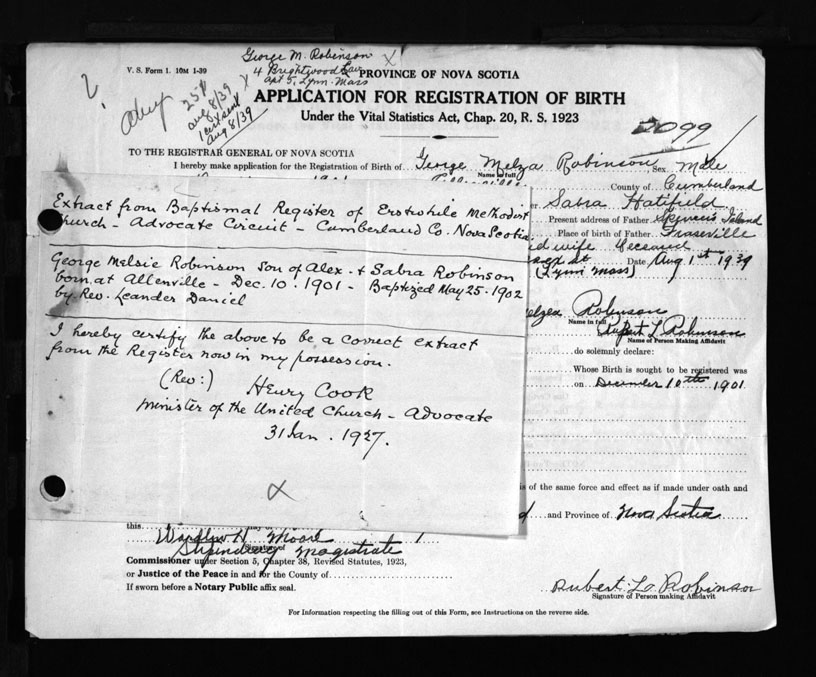 George M. Robinson
4 Brightwood Ter
apt 5, Lynn. Mass
V. S. Form 1. 10M 1-39
PROVINCE OF NOVA SCOTIA
25¢
aug 8/39
1 cert sent
Aug 8/39
APPLICATION FOR REGISTRATION OF BIRTH
Under the Vital Statistics Act, Chap. 20, R. S. 1923
2099
TO THE REGISTRAR GENERAL OF NOVA SCOTIA
I hereby make application for the Registration of Birth of George Melza Robinson Sex Male
Name in full
County of Cumberland
Sabra Hatfield
Present address of Father Spencers Island
Place of birth of Father Fraserville
deceased
Date Aug 1st 1939
(Lynn Mass)
Extract from Baptismal Register of Erstwhile Methodist
Church - Advocate Circuit - Cumberland Co. Nova Scotia
George Melsie Robinson Son of Alex. & Sabra Robinson
born at Allenville - Dec. 10. 1901 - Baptized May 25. 1902
by Rev. Leander Daniel
I hereby certify the above to be a correct extract
from the Register now in my possession.
(Rev:) Henry Cook
Minister of the United Church - Advocate
31 Jan. 1927.
X
Robinson
Name in full
Rupert L Robinson
Name of Person Making Affidavit
do solemnly declare:
Whose Birth is sought to be registered was
on December 10th 1901
is of the same force and effect as if made under oath and
and Province of Nova Scotia
this
Moore
Stipendiary Magistrate
Commissioner under Section 5, Chapter 38, Revised Statutes, 1923,
or Justice of the Peace in and for the County of
If sworn before a Notary Public affix seal.
Rubert L. Robinson
Signature of Person making Affidavit
For Information respecting the filling out of this Form, see Instructions on the reverse side.